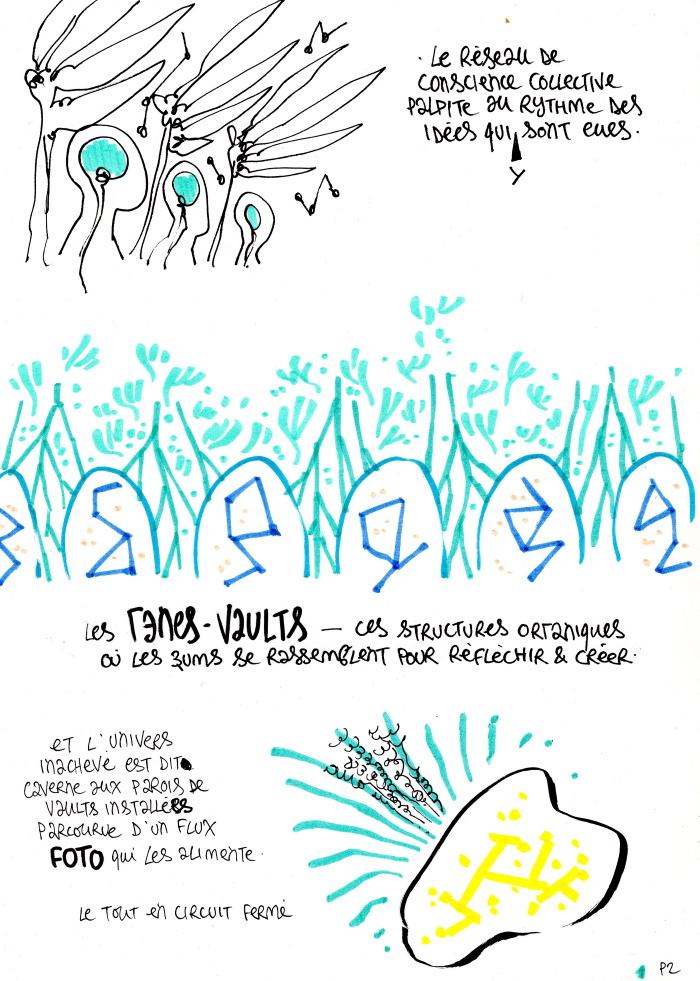 · Le réseau de
conscience collective
palpite au rythme des
idées qui sont eues.
y
Les Ganes-Vaults — ces structures organiques
où les zums se rassemblent pour réfléchir & créer.
et l'univers
inachevé est dit
caverne aux parois de
vaults installées
parcourue d'un flux
FOTO qui les alimente.
Le tout en circuit fermé
P2